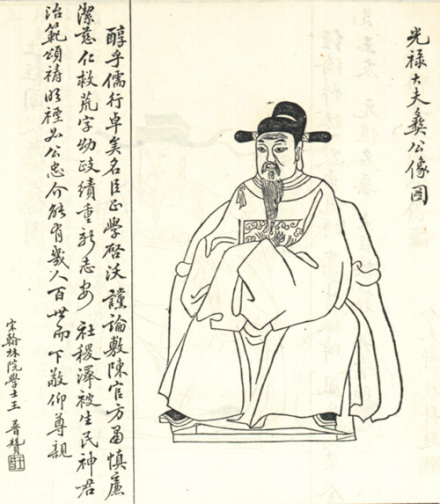 光禄大夫彝公像圖
醇乎儒行卓矣名臣正學啓沃讜論敷陳官方慎廉
潔慈仁救荒字幼政績重新志安社稷澤被生民神君
治範頌禱明禋如公忠介能有幾人百世而下敬仰尊親
宋翰林院學士王普贊